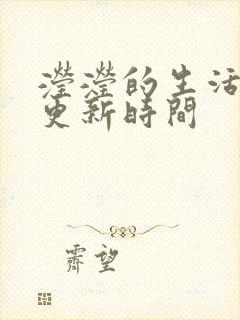 瀅瀅的生活
更新時間
齊望